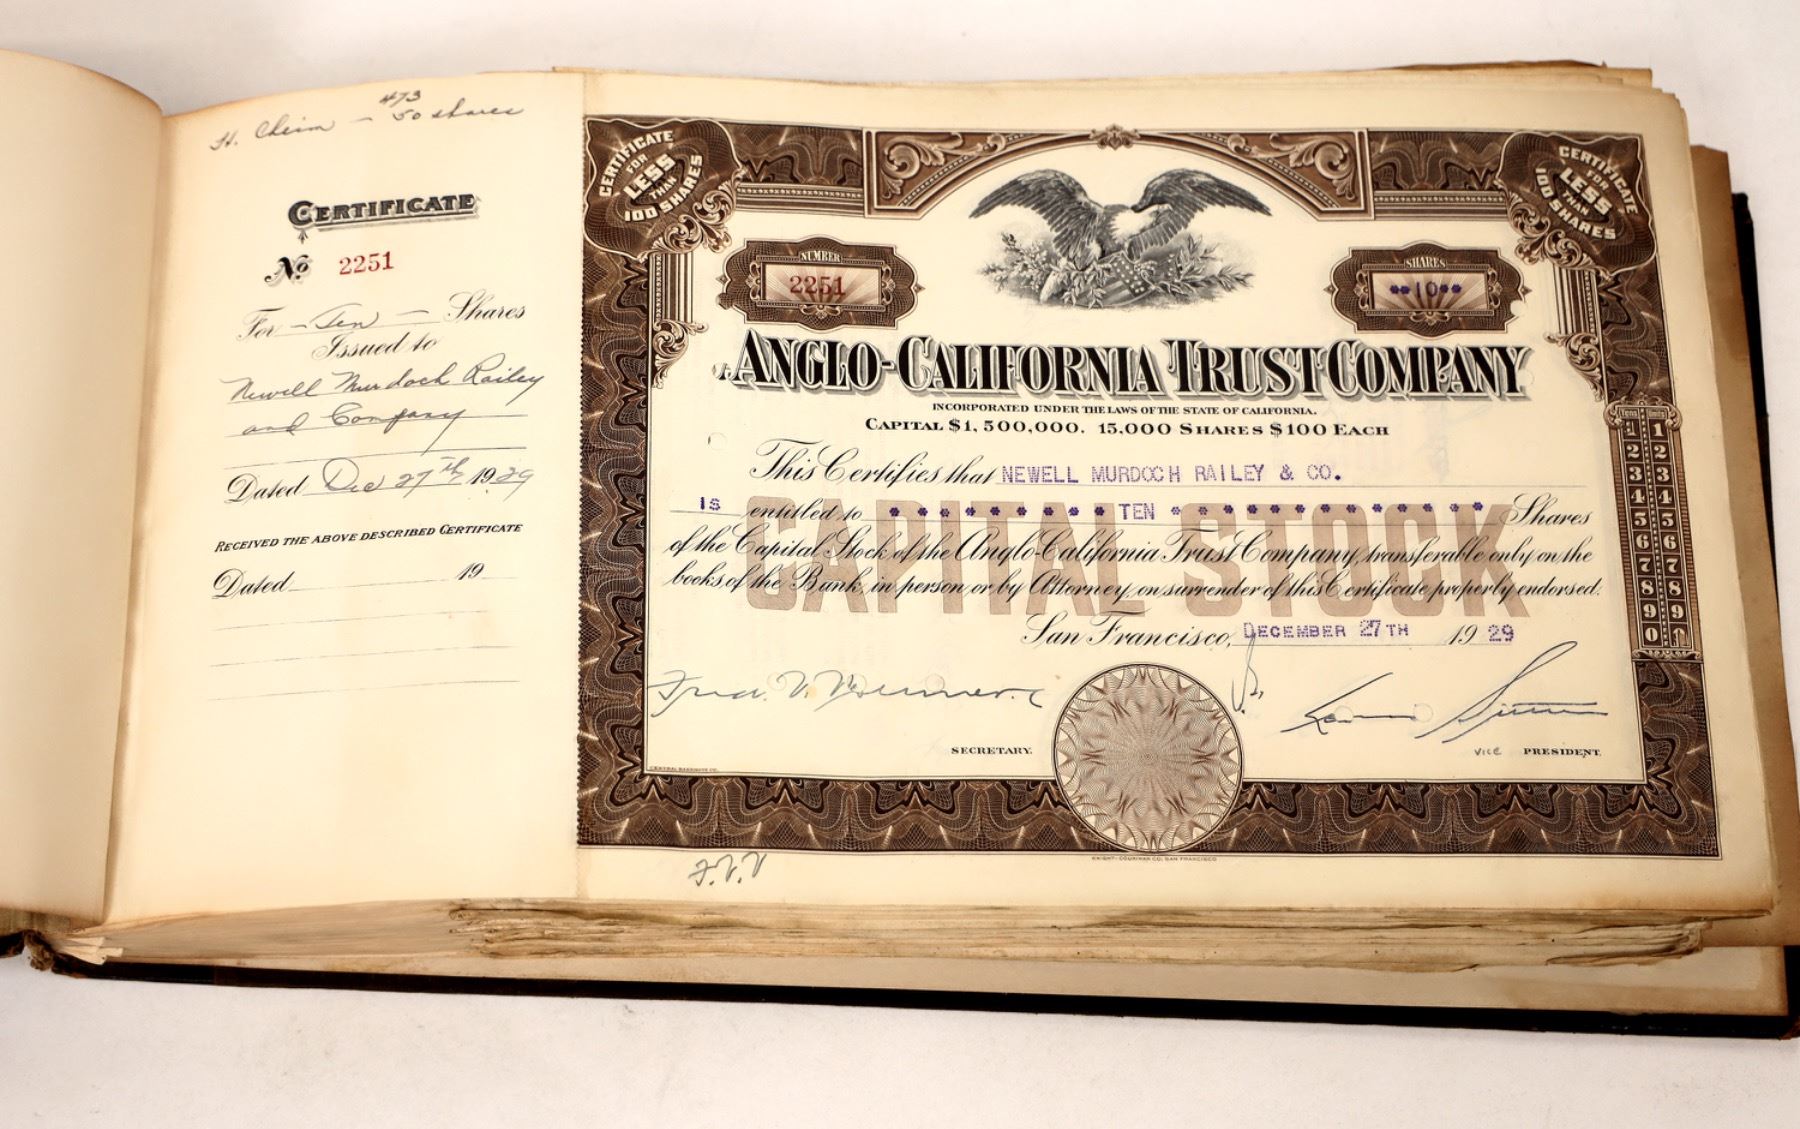 473
H. Cheim — 50 shares
CERTIFICATE
No 2251
For — Ten — Shares
Issued to
Newell Murdoch Railey
and Company
Dated Dec 27th, 1929
RECEIVED THE ABOVE DESCRIBED CERTIFICATE
Dated 19
CERTIFICATE
FOR
LESS
THAN
100 SHARES
CERTIFICATE
FOR
LESS
THAN
100 SHARES
NUMBER
2251
SHARES
**10**
ANGLO-CALIFORNIA TRUST COMPANY
INCORPORATED UNDER THE LAWS OF THE STATE OF CALIFORNIA.
CAPITAL $1,500,000. 15,000 SHARES $100 EACH
This Certifies that NEWELL MURDOCH RAILEY & CO.
IS entitled to * * * * * * * * * TEN * * * * * * * * * * * * * Shares
CAPITAL STOCK
of the Capital Stock of the Anglo-California Trust Company, transferable only on the
books of the Bank, in person or by Attorney, on surrender of this Certificate properly endorsed.
San Francisco, DECEMBER 27TH 1929
Fred. V.
Jr.
SECRETARY.
VICE PRESIDENT.
Tens Units
1 1
2 2
3 3
4 4
5 5
6 6
7 7
8 8
9 9
0
CENTRAL BANKNOTE CO.
KNIGHT-COUNIHAN CO. SAN FRANCISCO
F.V.V